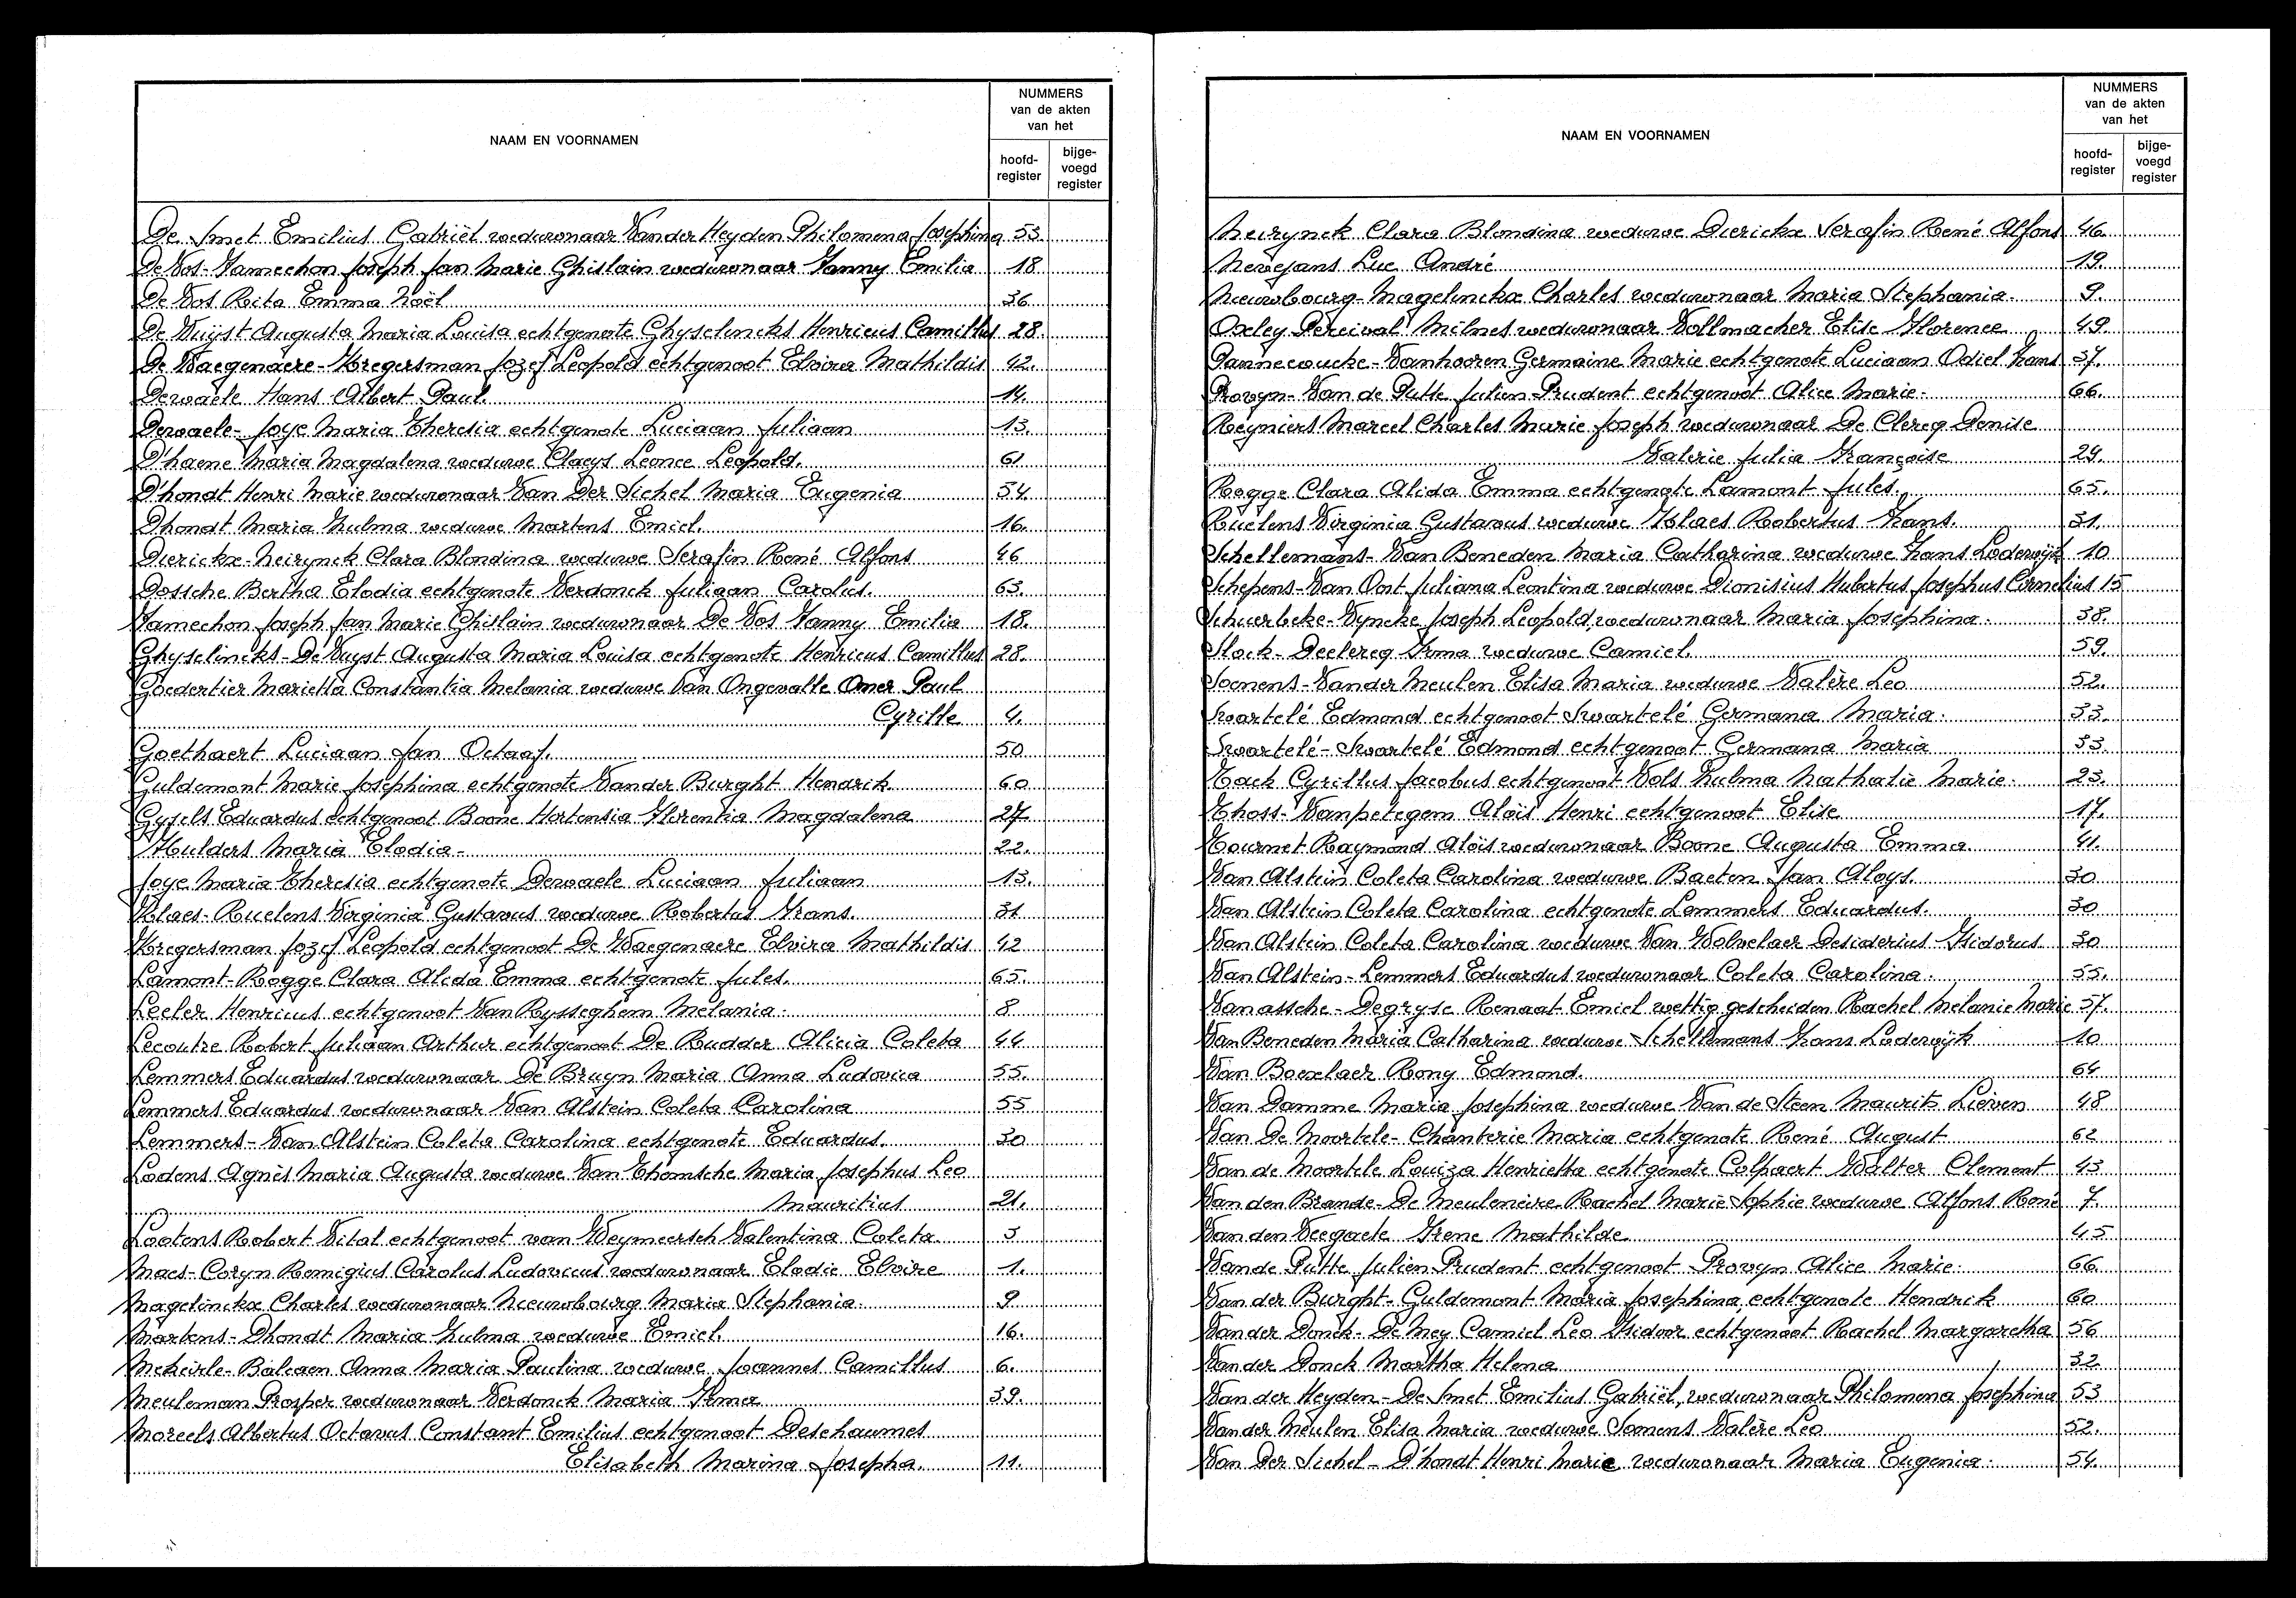 NAAM EN VOORNAMEN
NUMMERS
van de akten
van het
hoofd-
register
bijge-
voegd
register
De Smet Emilius Gabriël weduwnaar Van der Heyden Philomena Josephina 53.
De Vos-Famechon Joseph Jan Marie Ghislain weduwnaar Fanny Emilia 18
De Vos Rita Emma Noël 36
De Vuijst Augusta Maria Louisa echtgenote Ghyselincks Henricus Camillus 28.
De Waegenaere-Kregersman Jozef Leopold echtgenoot Elvira Mathildis 42.
Dewaele Hans Albert Paul. 14.
Dewaele-Joye Maria Theresia echtgenote Luciaan Juliaan 13.
D'haene Maria Magdalena weduwe Claeys Leonce Leopold. 61
D'hondt Henri Marie weduwnaar Van Der Sichel Maria Eugenia 54.
Dhondt Maria Zulma weduwe Martens Emiel. 16.
Dierickx-Neirynck Clara Blondina weduwe Serafin René Alfons 46
Dossche Bertha Elodia echtgenote Verdonck Juliaan Carolus. 63.
Famechon Joseph Jan Marie Ghislain weduwnaar De Vos Fanny Emilia 18.
Ghyselincks-De Vuyst Augusta Maria Louisa echtgenote Henricus Camillus 28.
Goedertier Marietta Constantia Melania weduwe Van Ongevalle Omer Paul
Cyrille 4.
Goethaert Luciaan Jan Octaaf. 50
Guldemont Marie Josephina echtgenote Vander Burght Hendrik 60
Gysels Eduardus echtgenoot Boone Hortensia Florentia Magdalena 27
Hulders Maria Elodia- 22.
Joye Maria Theresia echtgenote Dewaele Luciaan Juliaan 13.
Klaes-Ruelens Virginia Gustavus weduwe Robertus Frans. 31
Kregersman Jozef Leopold echtgenoot De Waegenaere Elvira Mathildis 42
Lamont-Rogge Clara Alida Emma echtgenote Jules. 65.
Lecler Henricus echtgenoot Van Rysseghem Melania 8
Lecoutre Robert Juliaan Arthur echtgenoot De Rudder Alicia Coleta 44
Lemmers Eduardus weduwnaar De Bruyn Maria Anna Ludovica 55.
Lemmers Eduardus weduwnaar Van Alstein Coleta Carolina 55
Lemmers-Van Alstein Coleta Carolina echtgenote Eduardus. 30
Lodens Agnès Maria Augusta weduwe Van Thomsche Maria Josephus Leo
Mauritius 21.
Lootens Robert Vital echtgenoot van Weymeersch Valentina Coleta 3
Maes-Coryn Remigius Carolus Ludovicus weduwnaar Elodie Elvire 1.
Magelinckx Charles weduwnaar Nieuwbourg Maria Stephania. 9
Martens-Dhondt Maria Zulma weduwe Emiel. 16.
Mekeirle-Balcaen Anna Maria Paulina weduwe Joannes Camillus 6.
Meuleman Prosper weduwnaar Verdonck Maria Irma 39.
Moreels Albertus Octavus Constant Emilius echtgenoot Deschaumes
Elisabeth Marina Josepha. 11.
NAAM EN VOORNAMEN
NUMMERS
van de akten
van het
hoofd-
register
bijge-
voegd
register
Neirynck Clara Blondina weduwe Dierickx Serafin René Alfons 46.
Nevejans Luc André 19.
Nieuwbourg-Magelinckx Charles weduwnaar Maria Stephania. 9.
Oxley Percival Milnes weduwnaar Vollmacher Elise Florence 49.
Pannecoucke-Vanhooren Germaine Marie echtgenote Luciaan Odiel Frans 37.
Provyn-Van de Putte Julien Prudent echtgenoot Alice Marie- 66.
Reyniers Marcel Charles Marie Joseph weduwnaar De Clercq Denise
Valerie Julia Françoise 29.
Rogge Clara Alida Emma echtgenote Lamont Jules. 65.
Ruelens Virginia Gustavus weduwe Klaes Robertus Frans. 31.
Schellemans-Van Beneden Maria Catharina weduwe Frans Lodewijk 10
Schepens-Van Oost Juliana Leontina weduwe Dionisius Hubertus Josephus Cornelius 15
Schuerbeke-Vyncke Joseph Leopold, weduwnaar Maria Josephina. 38.
Slock-Declercq Irma weduwe Camiel. 59.
Soenens-Vander Meulen Elisa Maria weduwe Valère Leo 52.
Swartelé Edmond echtgenoot Swartelé Germana Maria. 33.
Swartelé-Swartelé Edmond echtgenoot Germana Maria 33.
Tack Cyrillus Jacobus echtgenoot Vols Zulma Nathalie Marie. 23.
Thoss-Vanpetegem Aloïs Henri echtgenoot Elise 17.
Tournet Raymond Aloïs weduwnaar Boone Augusta Emma 41.
Van Alstein Coleta Carolina weduwe Baeten Jan Aloys. 30
Van Alstein Coleta Carolina echtgenote Lemmers Eduardus. 30
Van Alstein Coleta Carolina weduwe Van Wolvelaer Desiderius Isidorus 30
Van Alstein-Lemmers Eduardus weduwnaar Coleta Carolina. 55.
Vanassche-Degryse Renaat Emiel wettig gescheiden Rachel Melanie Marie 57.
Van Beneden Maria Catharina weduwe Schellemans Frans Lodewijk 10
Van Boexlaer Rony Edmond. 64
Van Damme Maria Josephina weduwe Van de Steen Maurits Lieven 48
Van De Moortele-Chanterie Maria echtgenote René August 62
Van de Moortele Louiza Henrietta echtgenote Colpaert Walter Clement 43
Van den Brande-De Meuleneire Rachel Marie Sophie weduwe Alfons René 7.
Van den Veegaete Irene Mathilde 45
Van de Putte Julien Prudent echtgenoot Provyn Alice Marie. 66.
Van der Burght-Guldemont Maria Josephina echtgenote Hendrik 60
Van der Donck-De Mey Camiel Leo Isidoor echtgenoot Rachel Margaretha 56
Van der Donck Martha Helena 32.
Van der Heyden-De Smet Emilius Gabriël, weduwnaar Philomena Josephina 53
Van der Meulen Elisa Maria weduwe Soenens Valère Leo 52.
Van Der Sichel-D'hondt Henri Marie weduwnaar Maria Eugenia. 54.